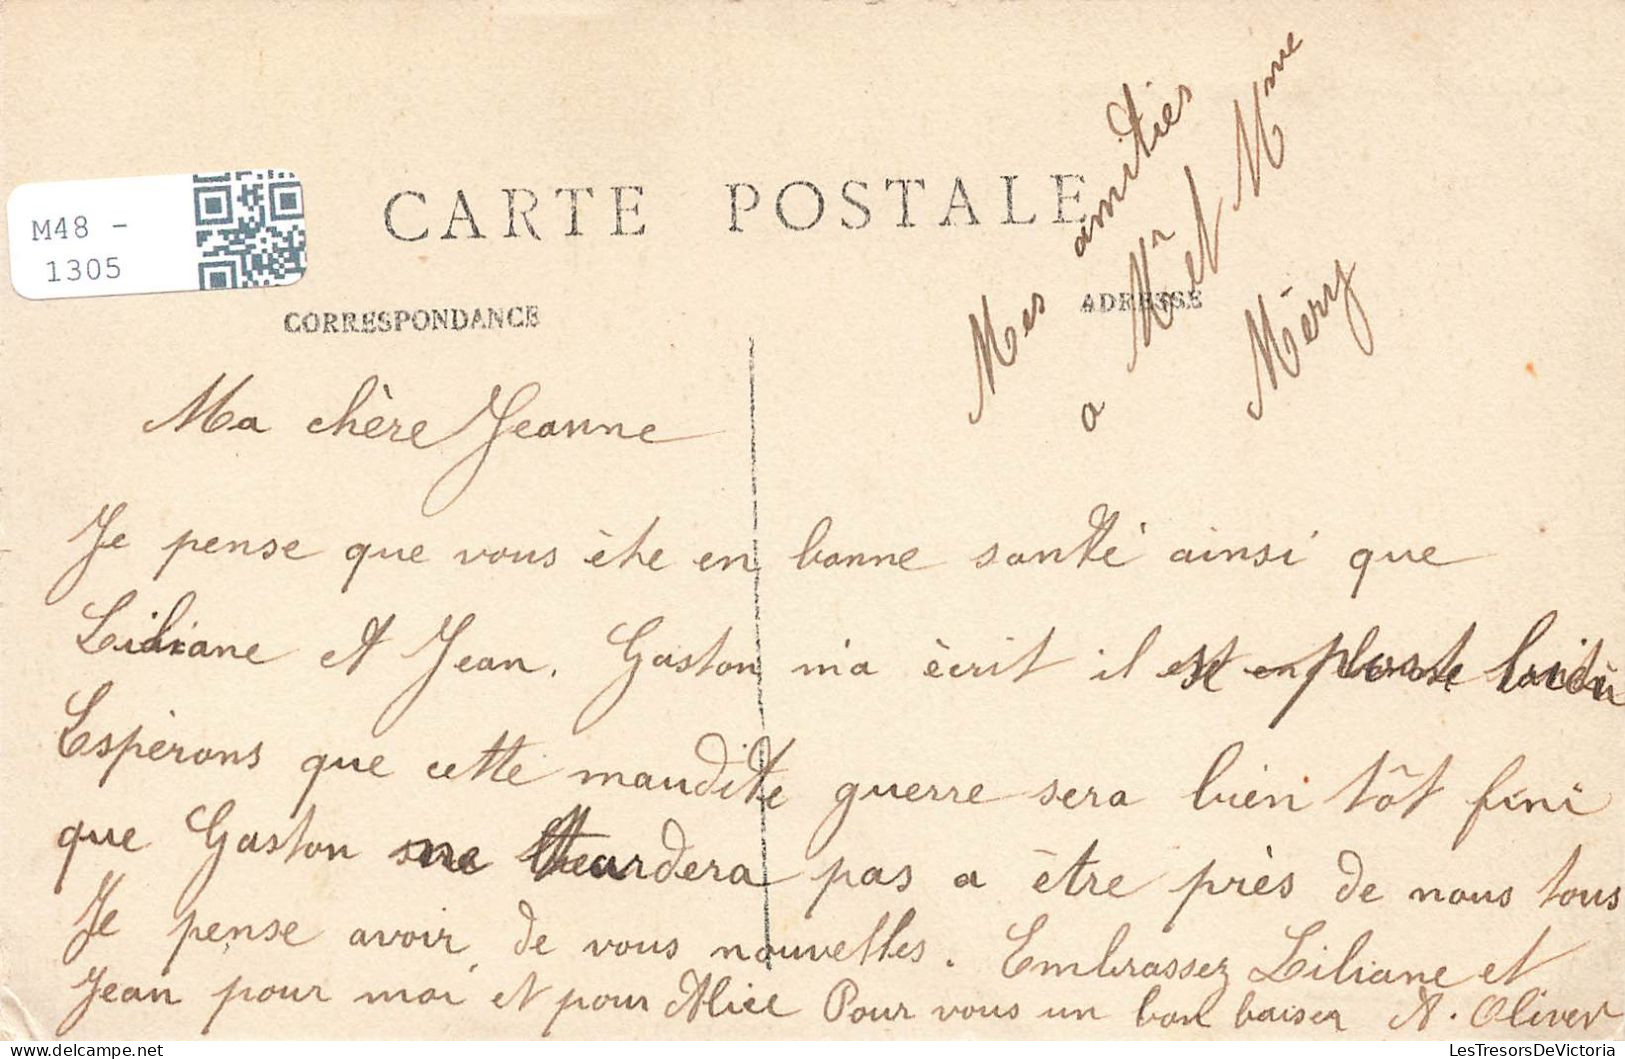 M48 -
1305
CARTE POSTALE
CORRESPONDANCE
ADRESSE
Mes amitiés
a Mr et Mme
Méry
Ma chère Jeanne
Je pense que vous ête en bonne santé ainsi que
Liliane et Jean. Gaston m'a écrit il est en
Lespérons que cette maudite guerre sera bien tôt fini
que Gaston ne tardera pas a être près de nous tous
Je pense avoir de vous nouvelles. Embrassez Liliane et
Jean pour moi et pour Alice Pour vous un bon baiser A. Oliver
LesTresorsDeVictoria